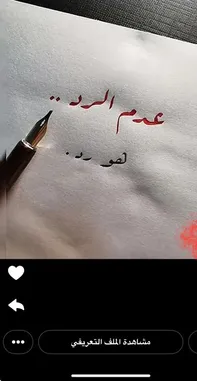 عدم الرد ..
لهو رد.
مشاهدة الملف التعريفي